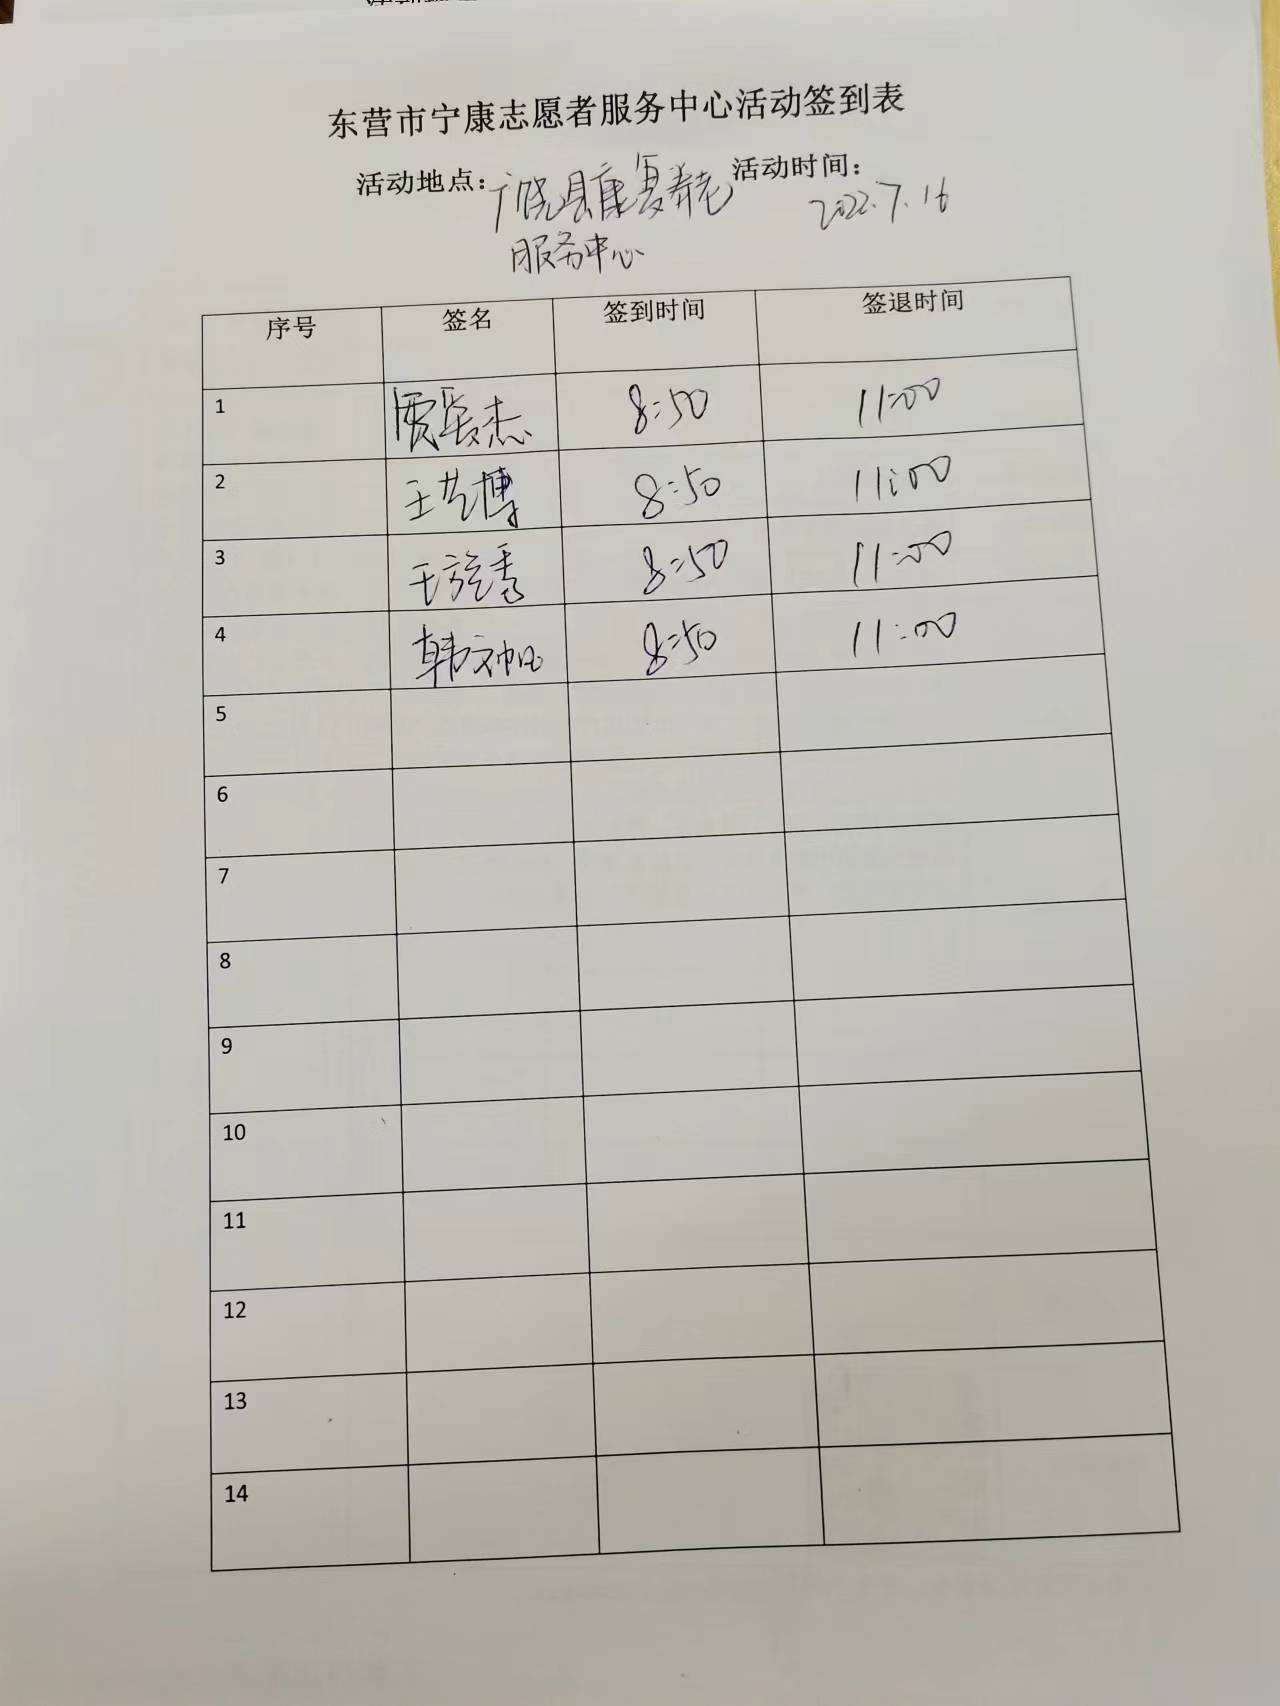 东营市宁康志愿者服务中心活动签到表
活动地点：广饶县康复养老 活动时间：
2022.7.16
服务中心
序号 签名 签到时间 签退时间
1 贾 杰 8:50 11:00
2 王艺博 8:50 11:00
3 王 秀 8:50 11:00
4 韩文帆 8:50 11:00
5
6
7
8
9
10
11
12
13
14